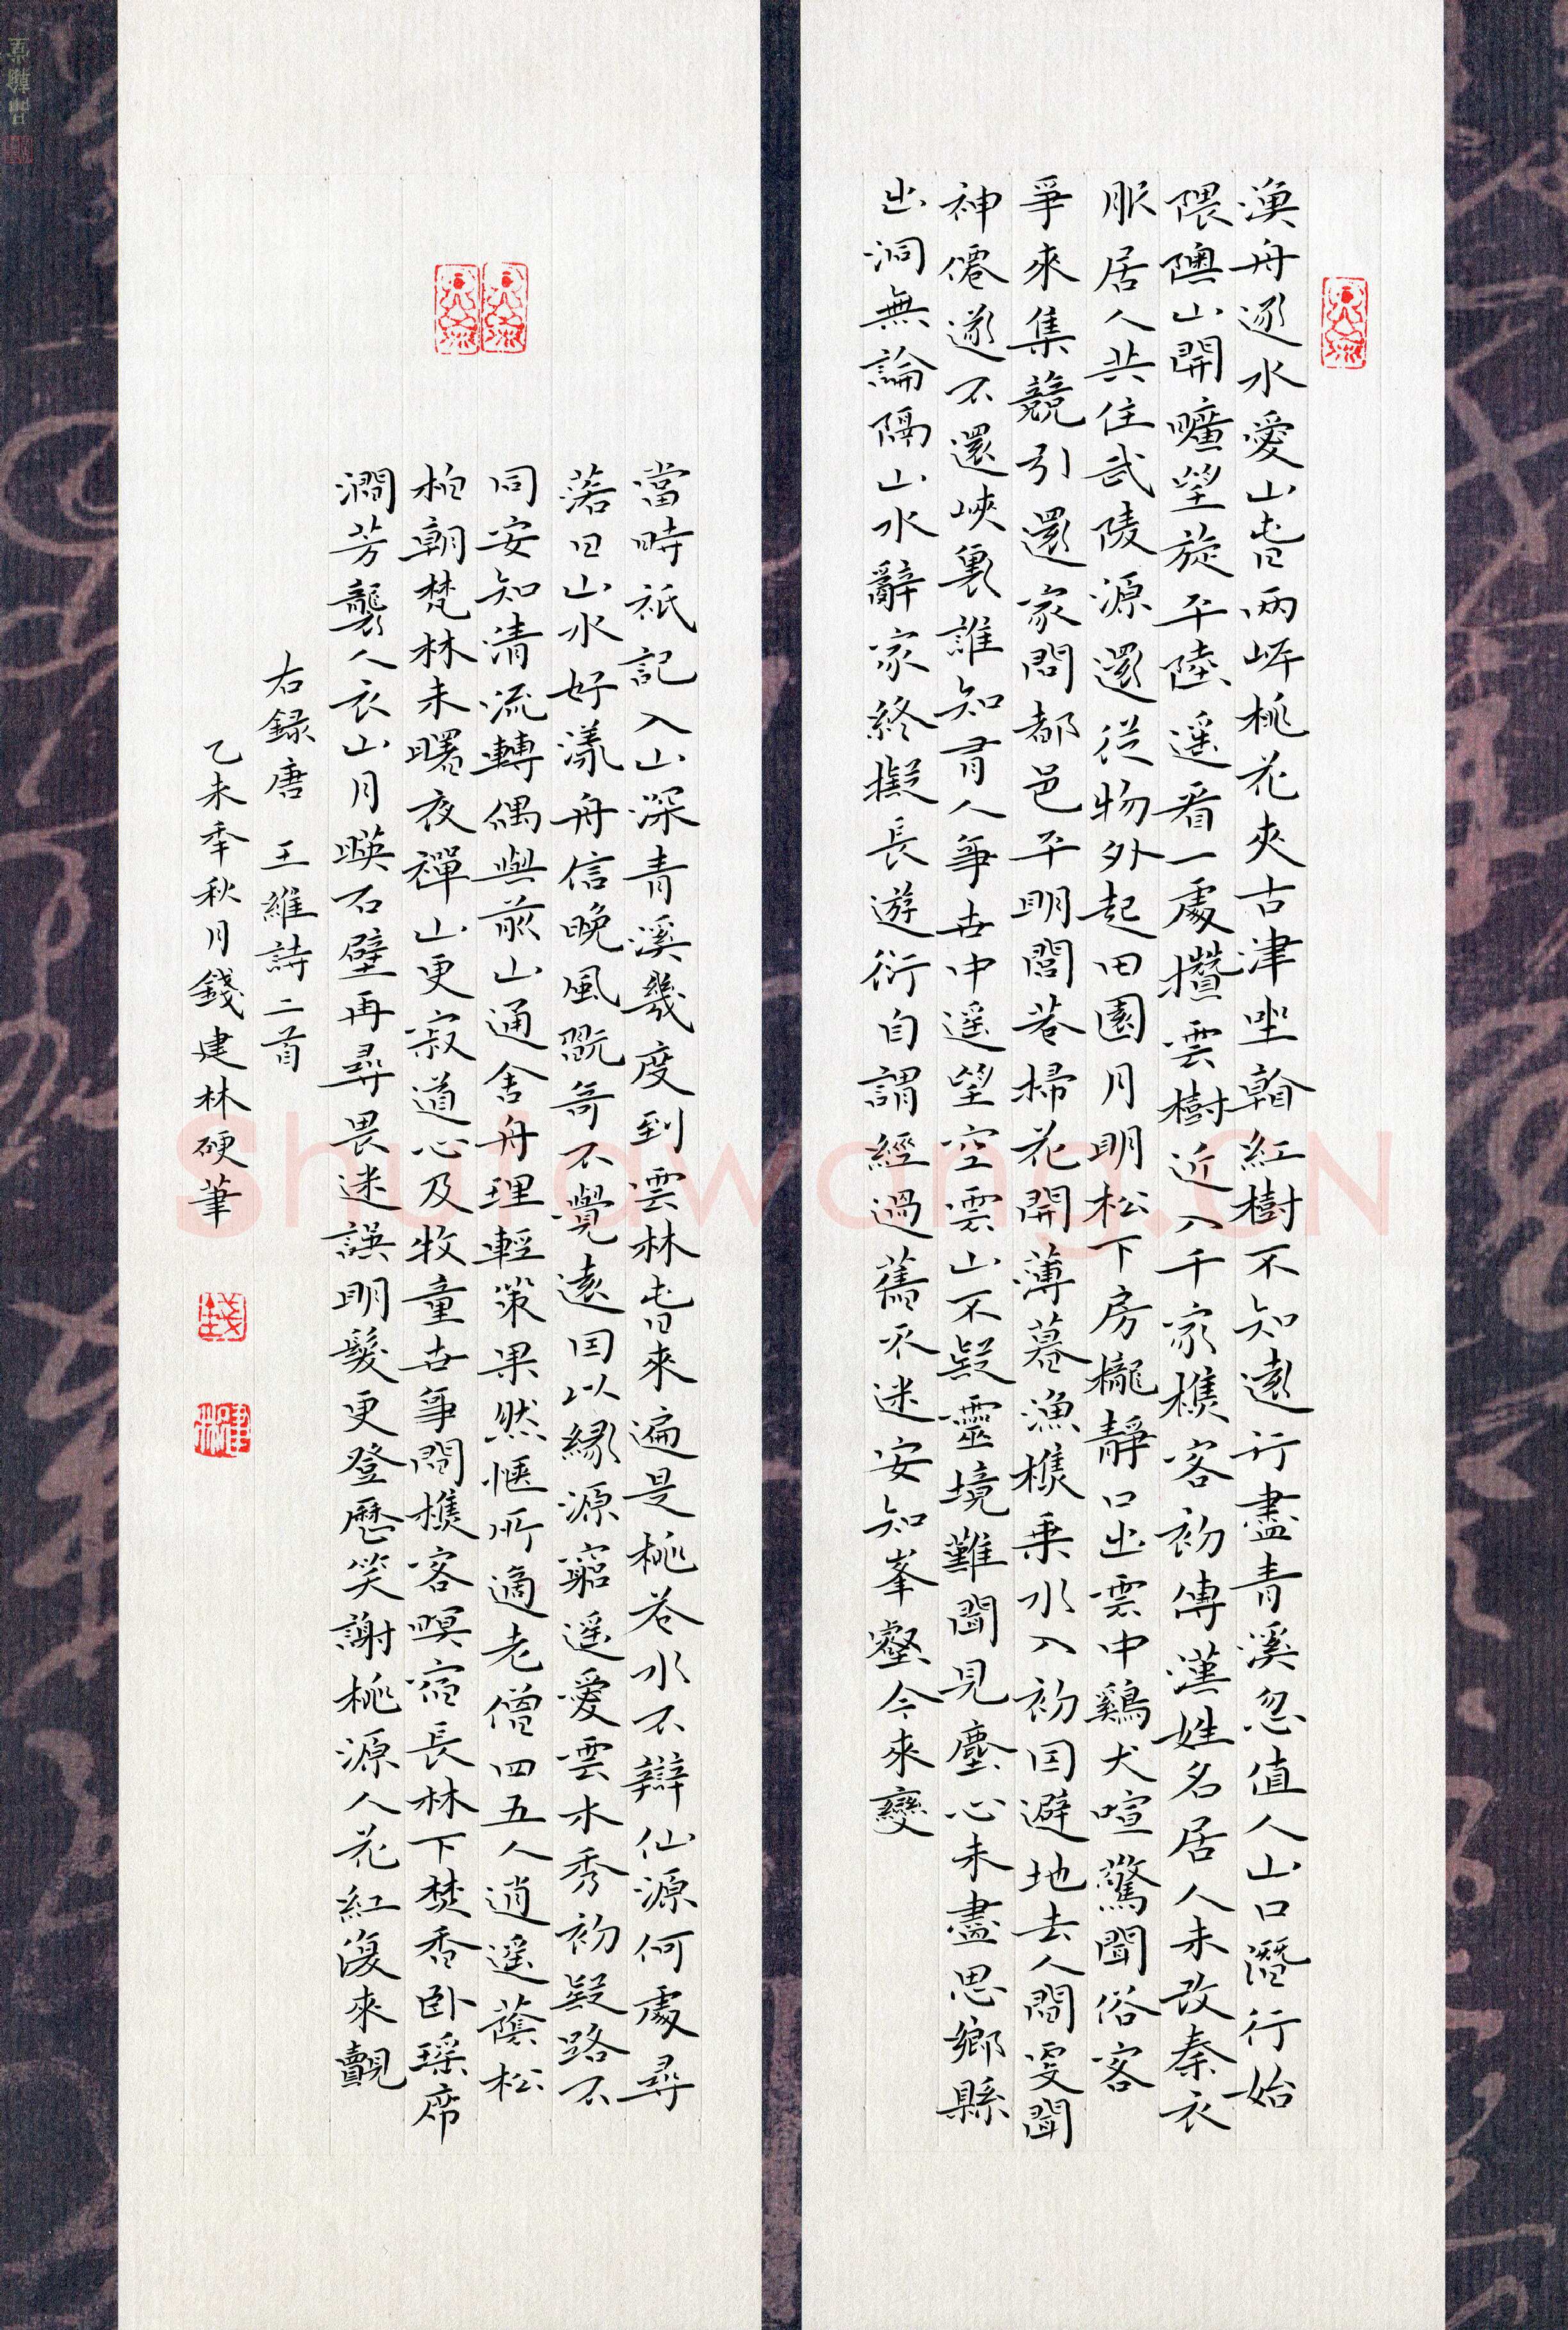 漁舟逐水愛山旾兩岸桃花夾古津坐看紅樹不知遠行盡青溪忽值人山口潛行始
隈隩山開曠望旋平陸遥看一處攢雲樹近入千家樵客初傳漢姓名居人未改秦衣
服居人共住武陵源還從物外起田園月明松下房櫳靜日出雲中鷄犬喧驚聞俗客
爭來集競引還家問都邑平明閭巷掃花開薄暮漁樵乘水入初因避地去人間更聞
神僊遂不還峽裏誰知有人事世中遥望空雲山不疑靈境難聞見塵心未盡思鄉縣
出洞無論隔山水辭家終擬長遊衍自謂經過舊不迷安知峯壑今來變
當時祇記入山深青溪幾度到雲林旾來遍是桃花水不辯仙源何處尋
落日山水好漾舟信晚風翫奇不覺遠因以緣源窮遥愛雲木秀初疑路不
同安知清流轉偶與前山通舍舟理輕策果然愜所適老僧四五人逍遥蔭松
柏朝梵林未曙夜禪山更寂道心及牧童世事問樵客暝宿長林下焚香卧瑶席
澗芳襲人衣山月暎石壁再尋畏迷誤明發更登歷笑謝桃源人花紅復來覿
右録唐 王維詩二首
乙未年秋月錢建林硬筆
錢
建林
Shufawang.CN